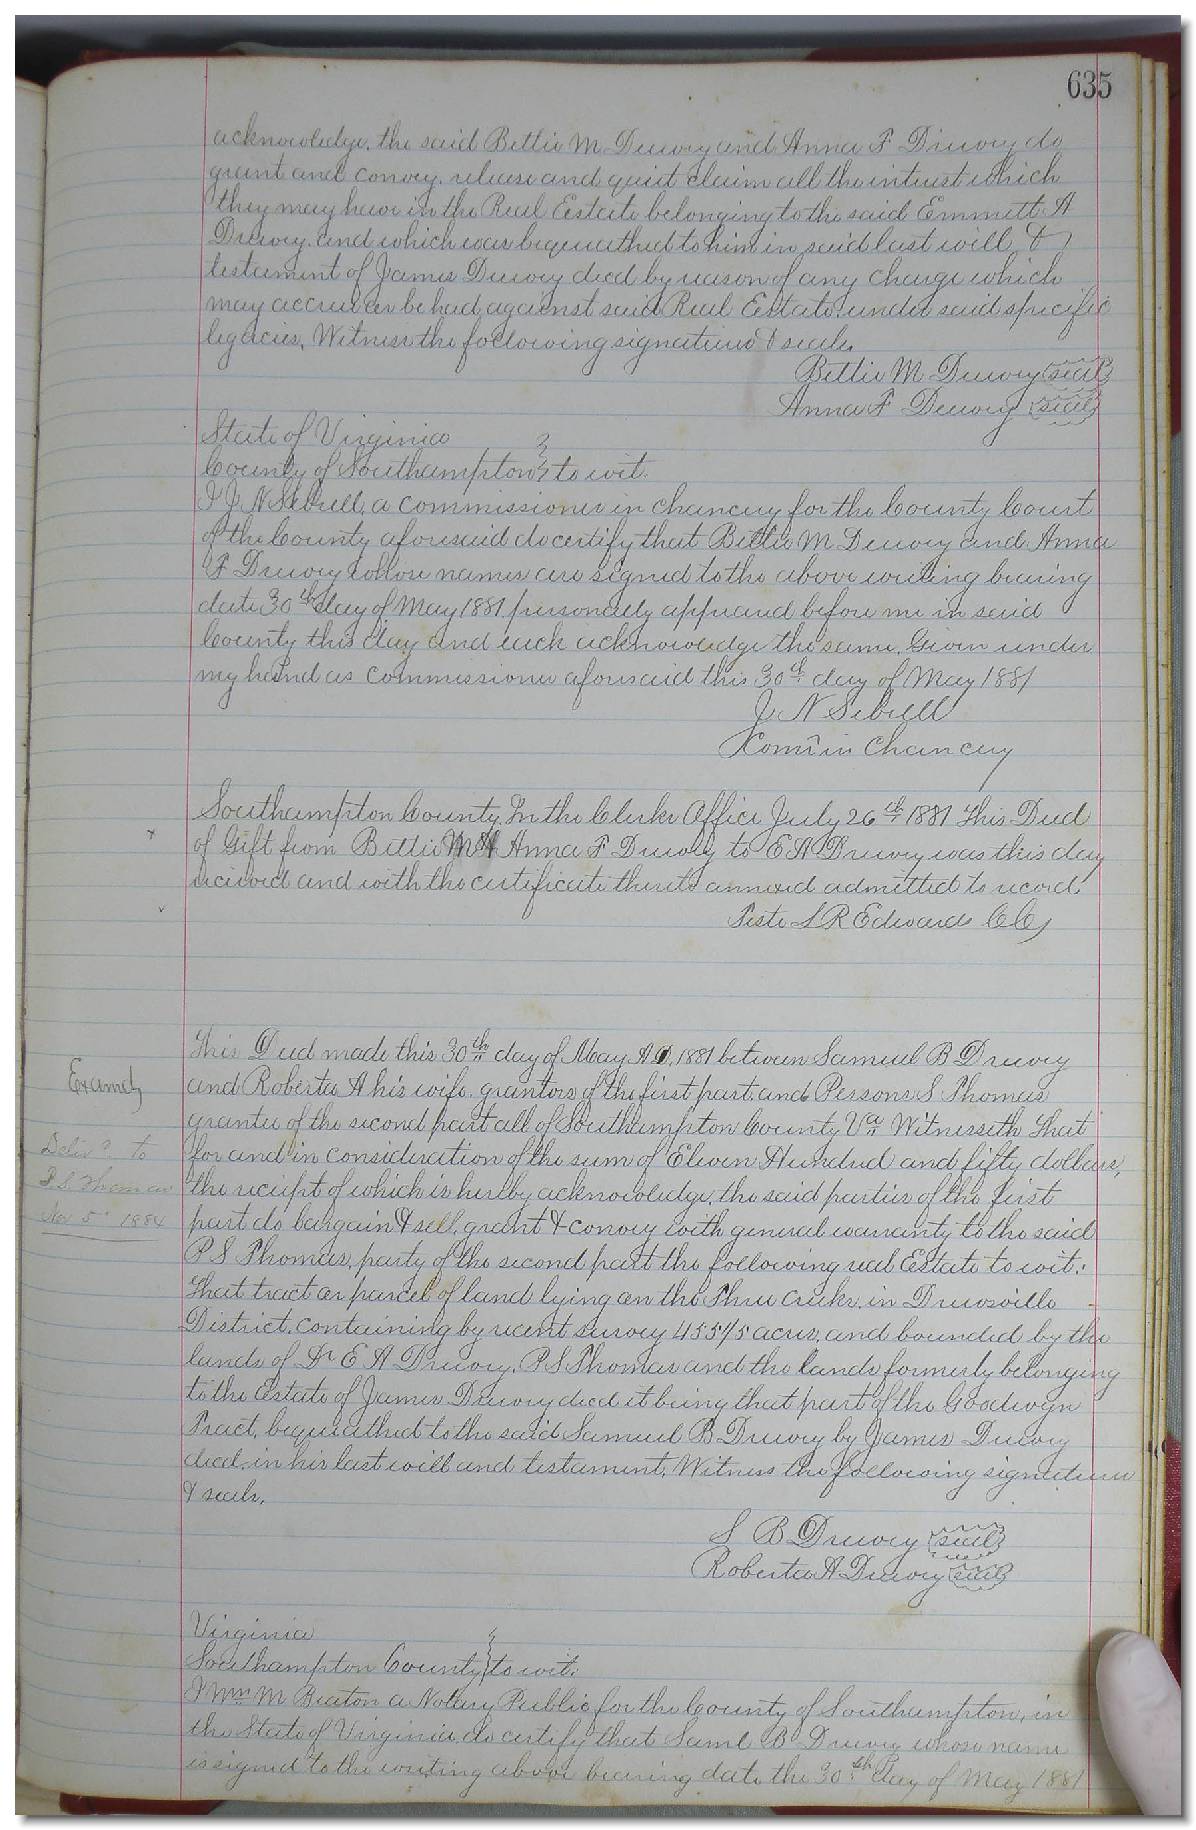 635
acknowledge, the said Bettie M Drewry and Anna F Drewry do
grant and convey, release and quiet claim all the interest which
they may have in the Real Estate belonging to the said Emmett A
Drewry, and which was bequeathed to him in said last will &
testament of James Drewry decd by reason of any charge which
may accrue or be had against said Real Estate, under said specific
legacies, Witness the following signatures & seals.
Bettie M Drewry seal
Anna F Drewry seal
State of Virginia
County of Southampton to wit.
I J. N Sebrell, a commissioner in chancery for the County Court
of the County aforesaid do certify that Bettie M Drewry and Anna
F Drewry whose names are signed to the above writing bearing
date 30th day of May 1881 personally appeared before me in said
County this day and each acknowledge the same. Given under
my hand as Commissioner aforesaid this 30th day of May 1881
J. N Sebrell
Comr in Chancery
Southampton County, In the Clerks Office July 26th 1881 This Deed
of Gift from Bettie M & Anna F Drewry to E A Drewry was this day
received and with the certificate thereto annexed admitted to record.
Teste L R Edwards CC
This Deed made this 30th day of May A D, 1881 between Samuel B Drewry
and Roberta A his wife, grantors of the first part, and Persons S Thomas
Examd
grantee of the second part all of Southampton County Va Witnesseth That
for and in consideration of the sum of Eleven Hundred and fifty dollars,
Delivd to
the receipt of which is hereby acknowledge, the said parties of the first
P. S. Thomas
part do bargain & sell, grant & convey with general warranty to the said
Nov 5th 1884
P S Thomas, party of the second part the following real Estate to wit:
That tract or parcel of land lying on the Three creeks, in Drewsville
District, containing by recent survey 455 4/5 acres, and bounded by the
lands of Dr E A Drewry, P S Thomas and the lands formerly belonging
to the Estate of James Drewry decd it being that part of the Goodwyn
Tract, bequeathed to the said Samuel B Drewry by James Drewry
decd, in his last will and testament, Witness the following signatures
& seals.
S B Drewry seal
Roberta A Drewry seal
Virginia
Southampton County to wit:
I Wm M Beaton a Notary Public for the County of Southampton, in
the State of Virginia, do certify that Saml B Drewry whose name
is signed to the writing above bearing date the 30th day of May 1881